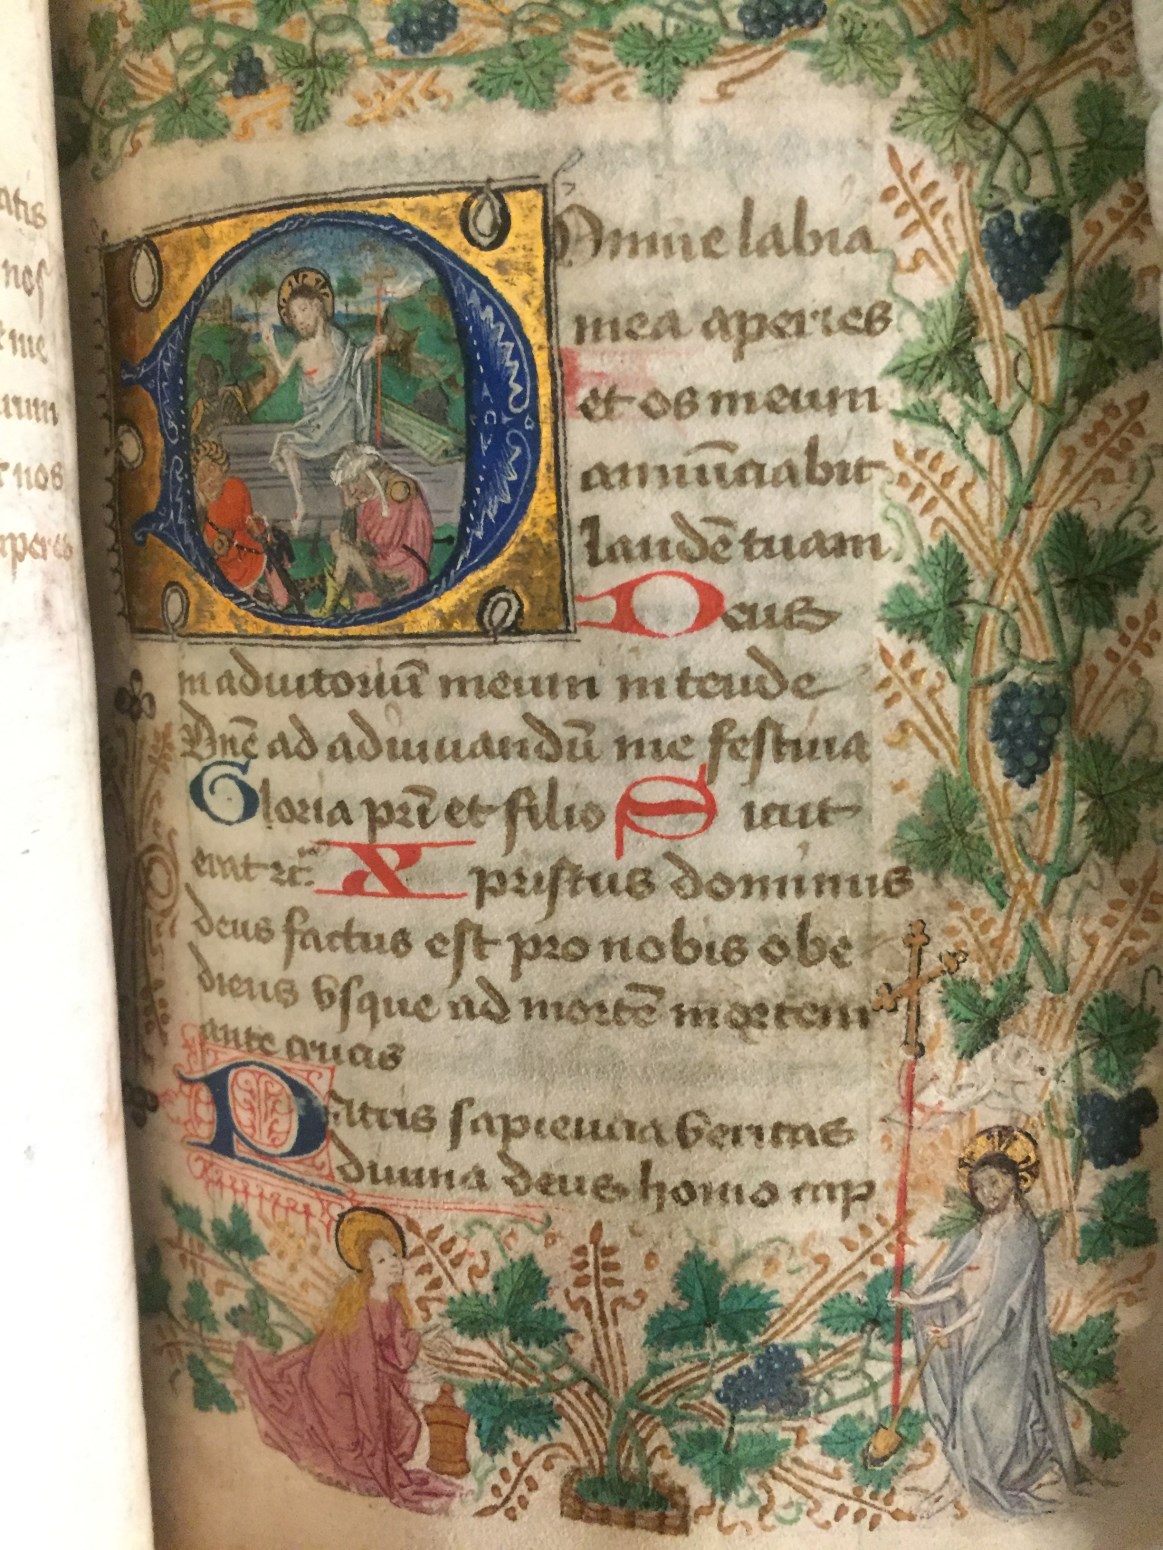 atis
nos
me
urum
nos
Domine labia
mea aperies
et os meum
annūciabit
laudē tuam
Deus
in adiutoriū meum intende
Dnē ad adiuuandū me festina
Gloria pr̄i et filio Sicut
erat ⁊c̄. Xpristus dominus
deus factus est pro nobis obe
diens vsque ad mortē mortem
ante crucis
Patris sapiencia veritas
diuina deus homo cap